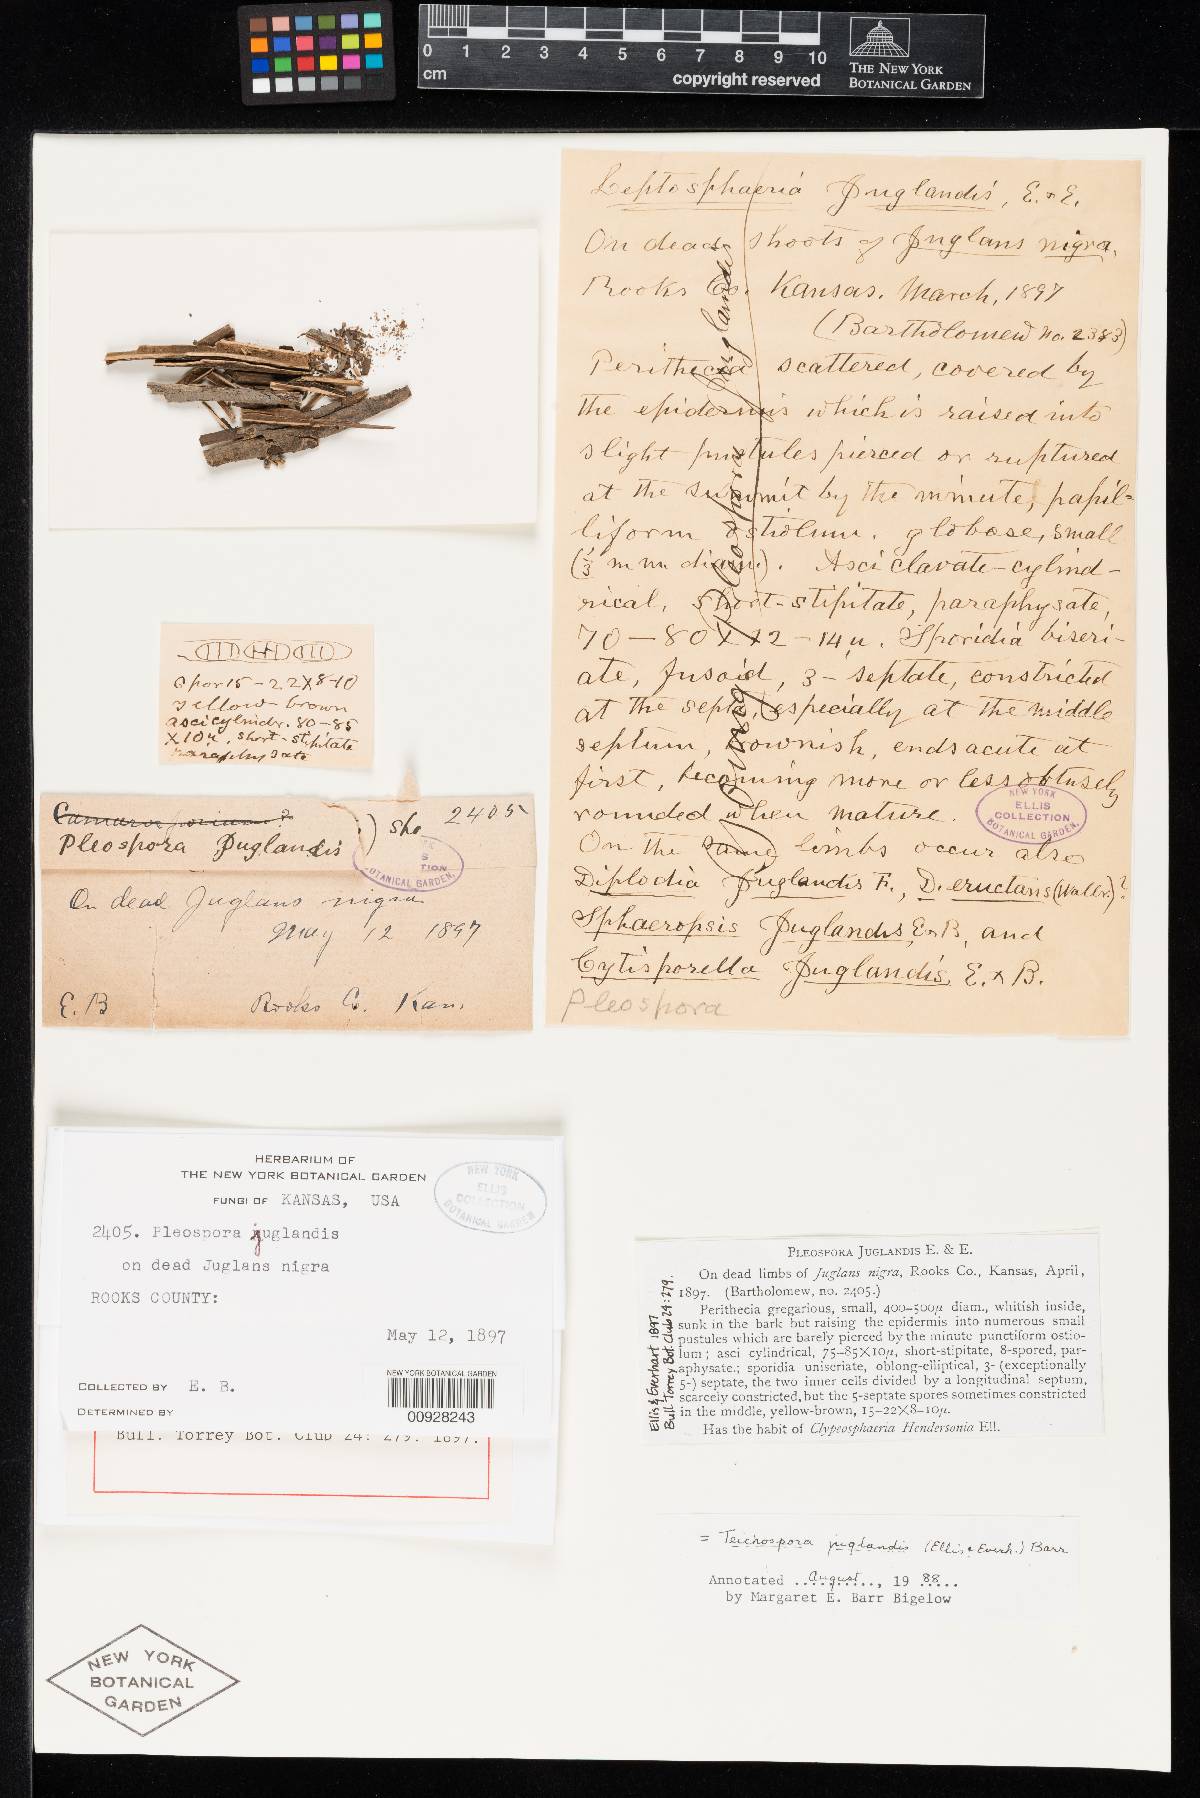 0 1 2 3 4 5 6 7 8 9 10
cm
copyright reserved
THE NEW YORK
BOTANICAL GARDEN
Leptosphaeria Juglandis, E. & E.
On dead shoots of Juglans nigra.
Rooks Co. Kansas. March, 1897
(Bartholomew No. 2383)
Perithecia scattered, covered by
the epidermis which is raised into
slight pustules pierced or ruptured
at the summit by the minute, papil=
liform ostiolum. globose, small
(⅓ m m diam.). Asci clavate-cylind-
rical, short-stipitate, paraphysate,
70-80 X 12-14 µ. Sporidia biseri-
ate, fusoid, 3-septate, constricted
at the septa, especially at the middle
septum, brownish, ends acute at
first, becoming more or less obtusely
rounded when mature.
On the same limbs occur also
Diplodia Juglandis Fr., D. eructans (Wallr.)?
Sphaeropsis Juglandis, E & B, and
Cytisporella Juglandis, E. & B.
Pleospora
Pleospora Juglandis
NEW YORK
ELLIS
COLLECTION
BOTANICAL GARDEN.
Spor 15-22 X 8-10
yellow-brown
asci cylindr. 80-85
X 10 µ, short-stipitate
paraphysate
Camarosporium?
Pleospora Juglandis
) Sho 2405
BOTANICAL GARDEN.
On dead Juglans nigra
May 12 1897
E. B Rooks Co. Kan.
HERBARIUM OF
THE NEW YORK BOTANICAL GARDEN
FUNGI OF KANSAS, USA
NEW YORK
ELLIS
COLLECTION
BOTANICAL GARDEN
2405. Pleospora juglandis
on dead Juglans nigra
ROOKS COUNTY:
May 12, 1897
COLLECTED BY E. B.
DETERMINED BY
NEW YORK BOTANICAL GARDEN
00928243
Bull. Torrey Bot. Club 24: 279. 1897.
Ellis & Everhart 1897
Bull. Torrey Bot. Club 24: 279.
PLEOSPORA JUGLANDIS E. & E.
On dead limbs of Juglans nigra, Rooks Co., Kansas, April,
1897. (Bartholomew, no. 2405.)
Perithecia gregarious, small, 400-500µ diam., whitish inside,
sunk in the bark but raising the epidermis into numerous small
pustules which are barely pierced by the minute punctiform ostio-
lum; asci cylindrical, 75-85X10µ, short-stipitate, 8-spored, par-
aphysate.; sporidia uniseriate, oblong-elliptical, 3- (exceptionally
5-) septate, the two inner cells divided by a longitudinal septum,
scarcely constricted, but the 5-septate spores sometimes constricted
in the middle, yellow-brown, 15-22X8-10µ.
Has the habit of Clypeosphaeria Hendersonia Ell.
= Teichospora juglandis (Ellis & Everh.) Barr
Annotated ..August.., 19 88..
by Margaret E. Barr Bigelow
NEW YORK
BOTANICAL
GARDEN